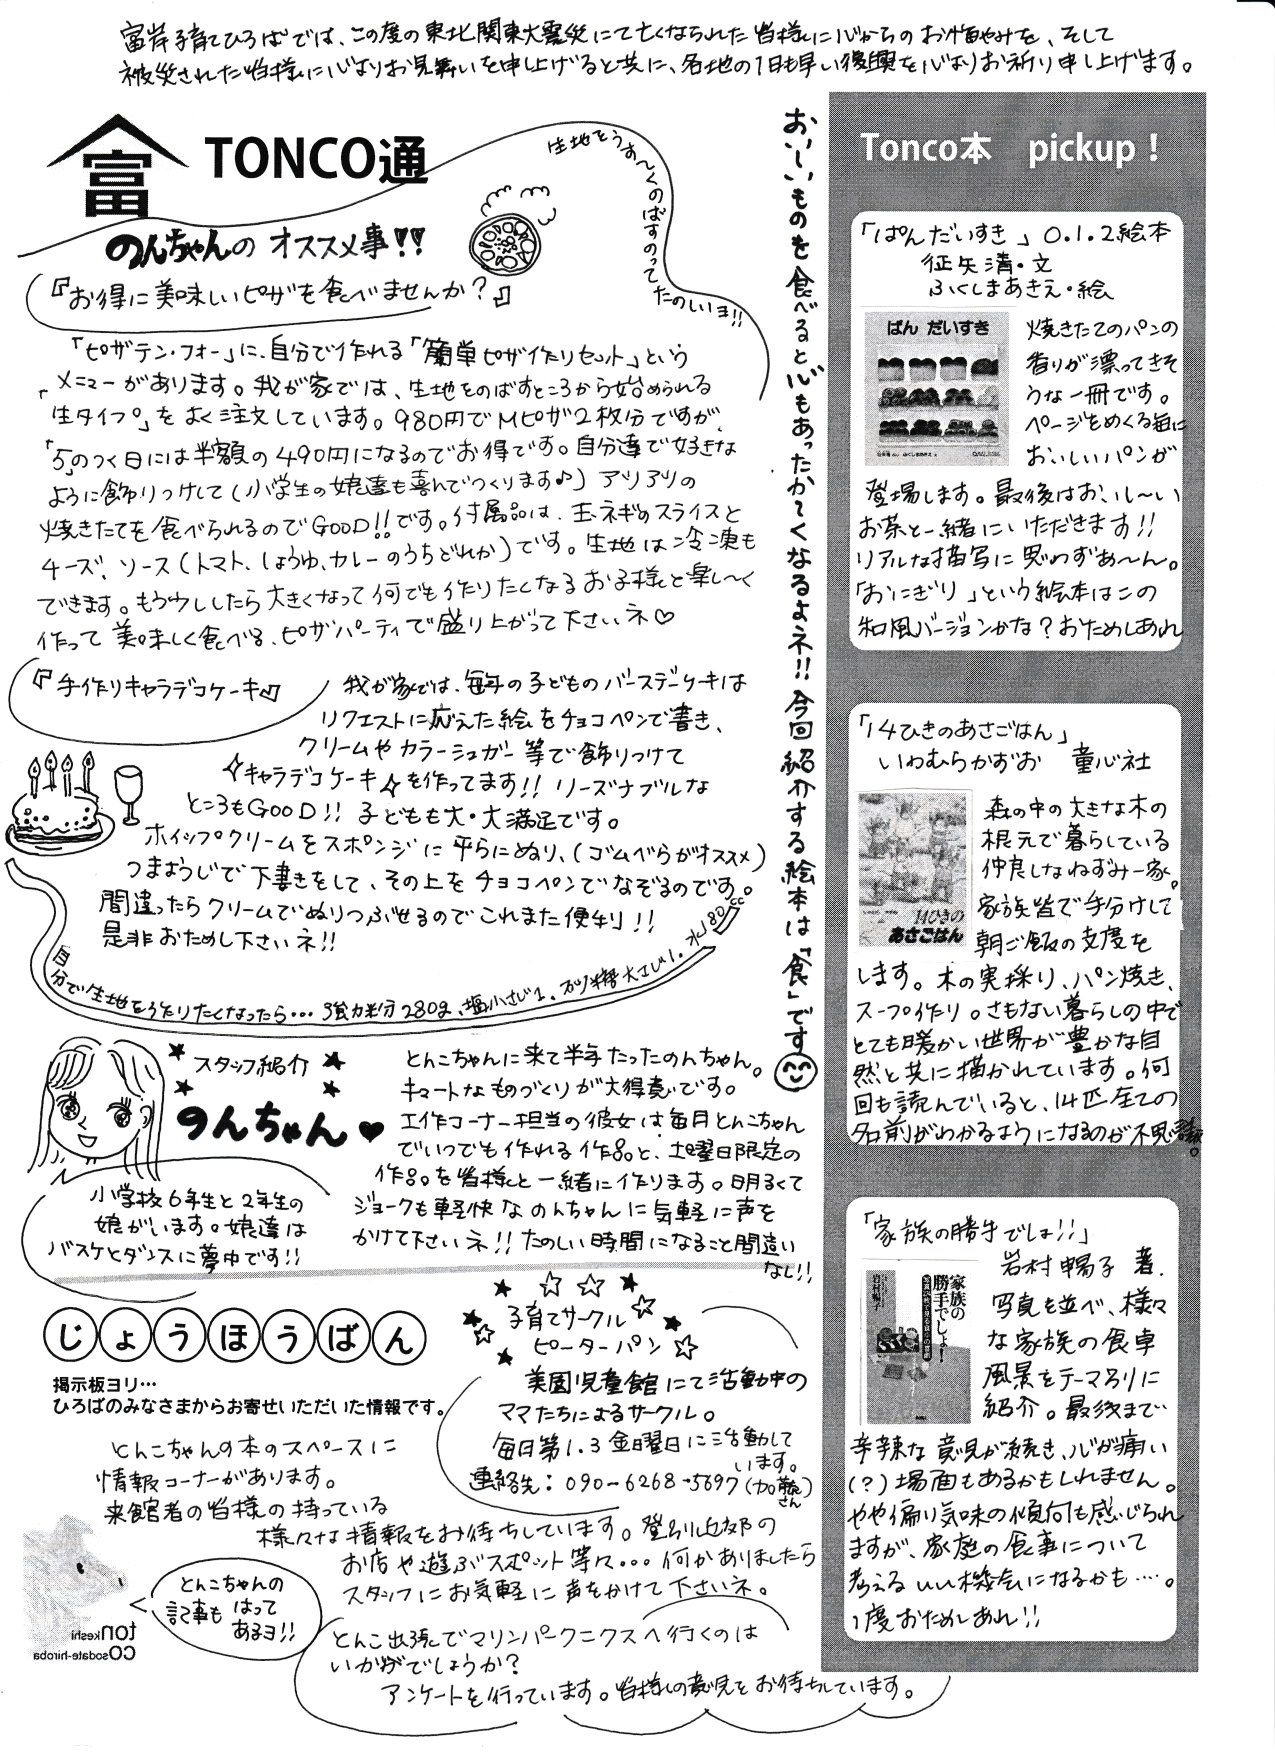 富岸子育てひろばでは、この度の東北関東大震災にて亡くなられた皆様に心からのお悔やみを、そして
被災された皆様に心よりお見舞いを申し上げると共に、各地の1日も早い復興を心よりお祈り申し上げます。
富
TONCO通
のんちゃんの オススメ事!!
生地をうす〜くのばすのってたのしいヨ!!
『お得に美味しいピザを食べませんか?』
「ピザテン・フォー」に、自分で作れる「簡単ピザ作りセット」という
メニューがあります。我が家では、生地をのばすところから始められる
「生タイプ」をよく注文しています。980円でMピザ2枚分ですが、
「5」のつく日には半額の490円になるのでお得です。自分達で好きな
ように飾りつけして(小学生の娘達も喜んでつくります♪)アツアツの
焼きたてを食べられるのでGOOD!!です。付属品は、玉ネギのスライスと
チーズ、ソース(トマト、しょうゆ、カレーのうちどれか)です。生地は冷凍も
できます。もう少ししたら大きくなって何でも作りたくなるお子様と楽し〜く
作って美味しく食べる、ピザパーティで盛り上がって下さいネ♡
『手作りキャラデコケーキ』
我が家では、毎年の子どものバースデーケーキは
リクエストに応えた絵をチョコペンで書き、
クリームやカラーシュガー等で飾りつけて
☆キャラデコケーキ☆を作ってます!! リーズナブルな
ところもGOOD!! 子どもも大・大満足です。
ホイップクリームをスポンジに平らにぬり、(ゴムべらがオススメ)
つまようじで下書きをして、その上をチョコペンでなぞるのです。
間違ったらクリームでぬりつぶせるのでこれまた便利!!
是非おためし下さいネ!!
自分で生地を作りたくなったら… 強力粉280g、塩小さじ1、砂糖大さじ1、水180cc
おいしいものを食べると心もあったか〜くなるよネ!! 今回紹介する絵本は「食」です
★スタッフ紹介★
★のんちゃん♥
小学校6年生と2年生の
娘がいます。娘達は
バスケとダンスに夢中です!!
とんこちゃんに来て半年たったのんちゃん。
キュートなものづくりが大得意です。
工作コーナー担当の彼女は毎月とんこちゃん
でいつでも作れる作品と、土曜日限定の
作品を皆様と一緒に作ります。明るくて
ジョークも軽快なのんちゃんに気軽に声を
かけて下さいネ!! たのしい時間になること間違い
なし!!
じょうほうばん
掲示板ヨリ…
ひろばのみなさまからお寄せいただいた情報です。
とんこちゃんの本のスペースに
情報コーナーがあります。
来館者の皆様の持っている
様々な情報をお待ちしています。登別近郊の
お店や遊ぶスポット等々…何かありましたら
スタッフにお気軽に声をかけて下さいネ。
子育てサークル
ピーターパン
美園児童館にて活動中の
ママたちによるサークル。
毎日第1.3金曜日に活動して
います。
連絡先:090-6268-5697(加藤さん)
とんこちゃんの
記事も はって
あるヨ!!
tonkeshi
COsodate-hiroba
とんこ出張でマリンパークニクスへ行くのは
いかがでしょうか?
アンケートを行っています。皆様の意見をお待ちしています。
Tonco本 pickup!
「ぱんだいすき」0.1.2絵本
征矢清・文
ふくしまあきえ・絵
ぱん だいすき
焼きたてのパンの
香りが漂ってきそ
うな一冊です。
ページをめくる毎に
おいしいパンが
登場します。最後はおいし〜い
お茶と一緒にいただきます!!
リアルな描写に思わずあ〜ん。
「おにぎり」という絵本はこの
和風バージョンかな?おためしあれ
「14ひきのあさごはん」
いわむらかずお 童心社
14ひきの
あさごはん
森の中の大きな木の
根元で暮らしている
仲良しなねずみ一家。
家族皆で手分けして
朝ご飯の支度を
します。木の実採り、パン焼き、
スープ作り。さもない暮らしの中で
とても暖かい世界が豊かな自
然と共に描かれています。何
回も読んでいると、14匹全ての
名前がわかるようになるのが不思議。
「家族の勝手でしょ!!」
岩村暢子 著.
家族の
勝手でしょ!
岩村暢子
写真を並べ、様々
な家族の食卓
風景をテーマ別に
紹介。最後まで
辛辣な意見が続き、心が痛い
(?)場面もあるかもしれません。
やや偏り気味の傾向も感じられ
ますが、家庭の食事について
考えるいい機会になるかも…。
1度おためしあれ!!